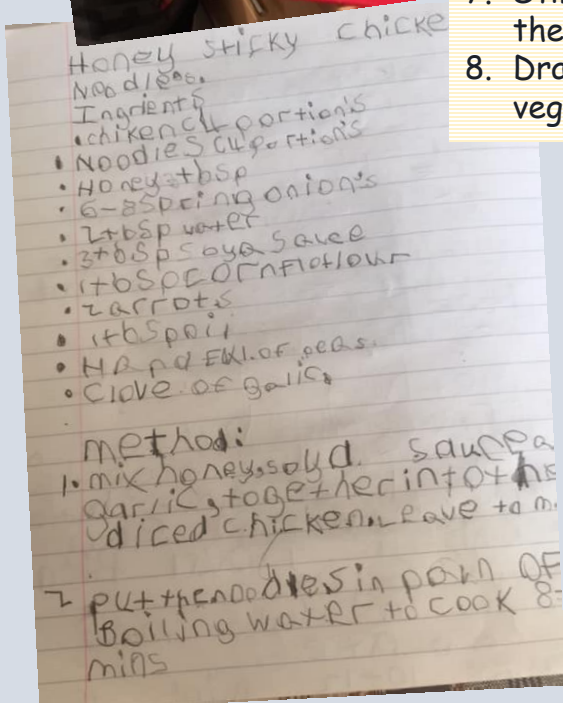 the
8. Dra
veg
Honey sticky chicke
Noodles.
Ingrients
• chiken (4 portion's
• Noodles (4 portion's
• Honey tbsp
• 6-8 spring onion's
• 2 tbsp water
• 3 tbsp soya sauce
• 1 tbsp cornfloflour
• 2 arrots
• 1 tbsp oil
• Handfull of peas.
• Clove of galic.
method:
1. mix honey, soya sauce a
garlic, together into the
diced chicken. Leave to m
2 put the noodles in pan OF
Boiling water to cook 8-
mins